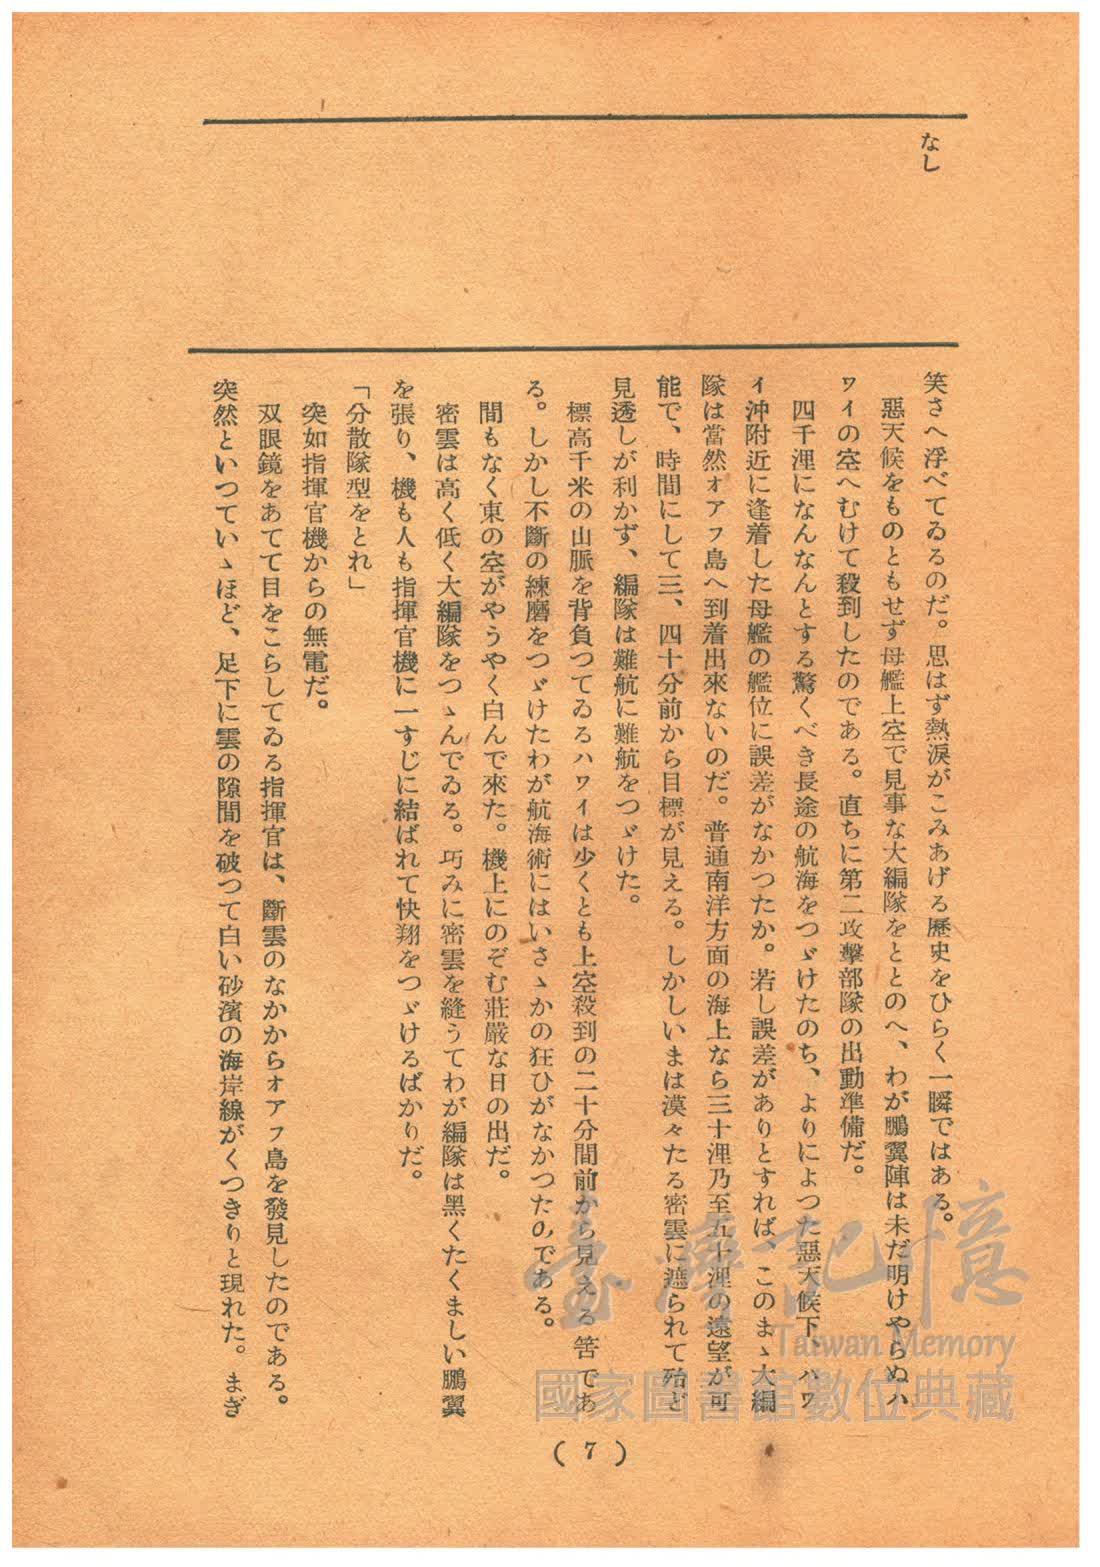 なし
笑さへ浮べてゐるのだ。思はず熱淚がこみあげる歷史をひらく一瞬ではある。
惡天候をものともせず母艦上空で見事な大編隊をととのへ、わが鵬翼陣は未だ明けやらぬハ
ワイの空へむけて殺到したのである。直ちに第二攻擊部隊の出動準備だ。
四千浬になんなんとする驚くべき長途の航海をつゞけたのち、よりによつた惡天候下、ハワ
イ沖附近に逢着した母艦の艦位に誤差がなかつたか。若し誤差がありとすれば、このまゝ大編
隊は當然オアフ島へ到着出來ないのだ。普通南洋方面の海上なら三十浬乃至五十浬の遠望が可
能で、時間にして三、四十分前から目標が見える。しかしいまは漠々たる密雲に遮られて殆ど
見透しが利かず、編隊は難航に難航をつゞけた。
標高千米の山脈を背負つてゐるハワイは少くとも上空殺到の二十分間前から見える筈であ
る。しかし不斷の練磨をつゞけたわが航海術にはいさゝかの狂ひがなかつたのである。
間もなく東の空がやうやく白んで來た。機上にのぞむ莊嚴な日の出だ。
密雲は高く低く大編隊をつゝんでゐる。巧みに密雲を縫うてわが編隊は黑くたくましい鵬翼
を張り、機も人も指揮官機に一すじに結ばれて快翔をつゞけるばかりだ。
「分散隊型をとれ」
突如指揮官機からの無電だ。
双眼鏡をあてて目をこらしてゐる指揮官は、斷雲のなかからオアフ島を發見したのである。
突然といつていゝほど、足下に雲の隙間を破つて白い砂濱の海岸線がくつきりと現れた。まぎ
(7)
臺灣記憶
Taiwan Memory
國家圖書館數位典藏